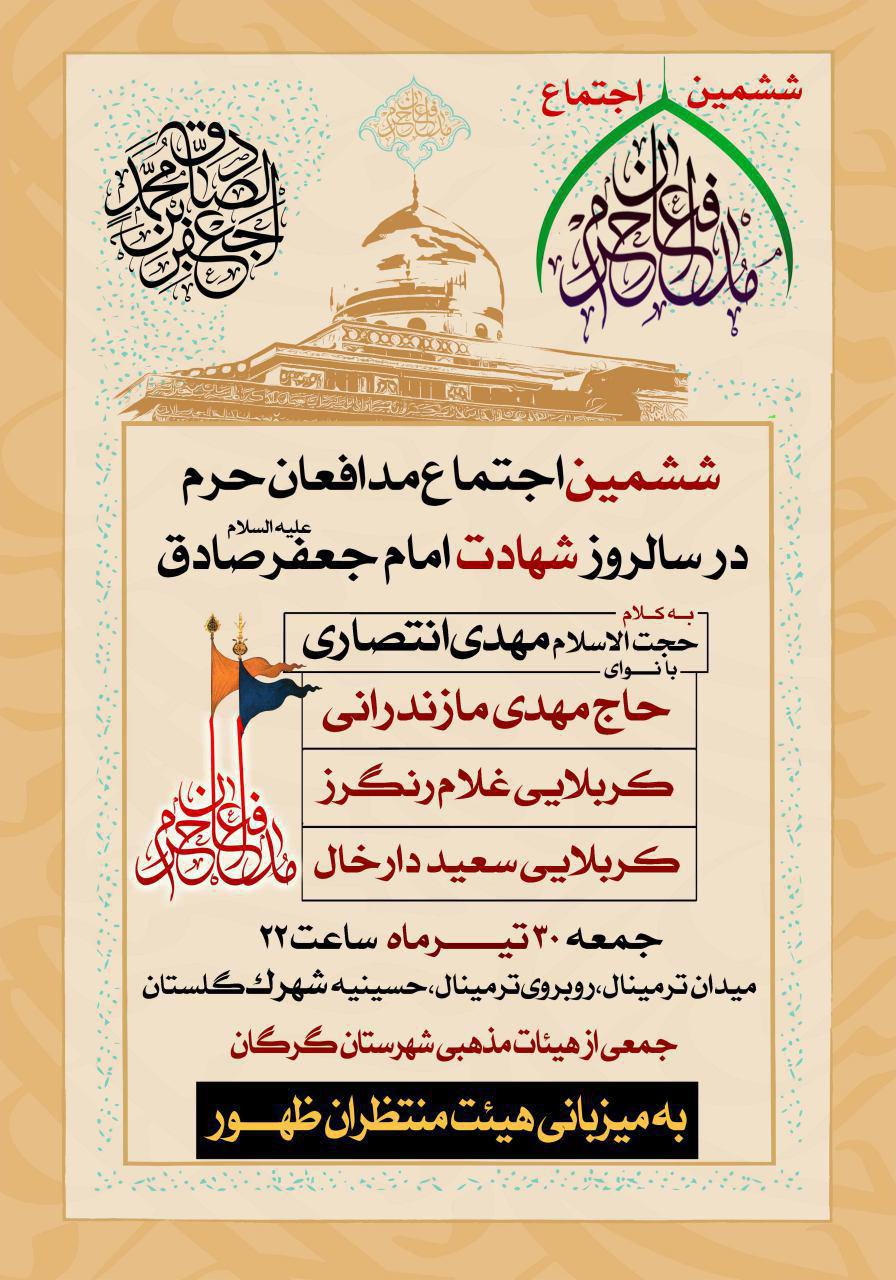 ششمین اجتماع
مدافعان حرم
جعفر بن محمد الصادق
مدافعان حرم
ششمین اجتماع مدافعان حرم
در سالروز شهادت امام جعفر صادق علیه السلام
به کلام
حجت الاسلام مهدی انتصاری
با نوای
حاج مهدی مازندرانی
کربلایی غلام رنگرز
کربلایی سعید دارخال
مدافعان حرم
جمعه ۳۰ تیرماه ساعت ۲۲
میدان ترمینال، روبروی ترمینال، حسینیه شهرک گلستان
جمعی از هیئات مذهبی شهرستان گرگان
به میزبانی هیئت منتظران ظهور